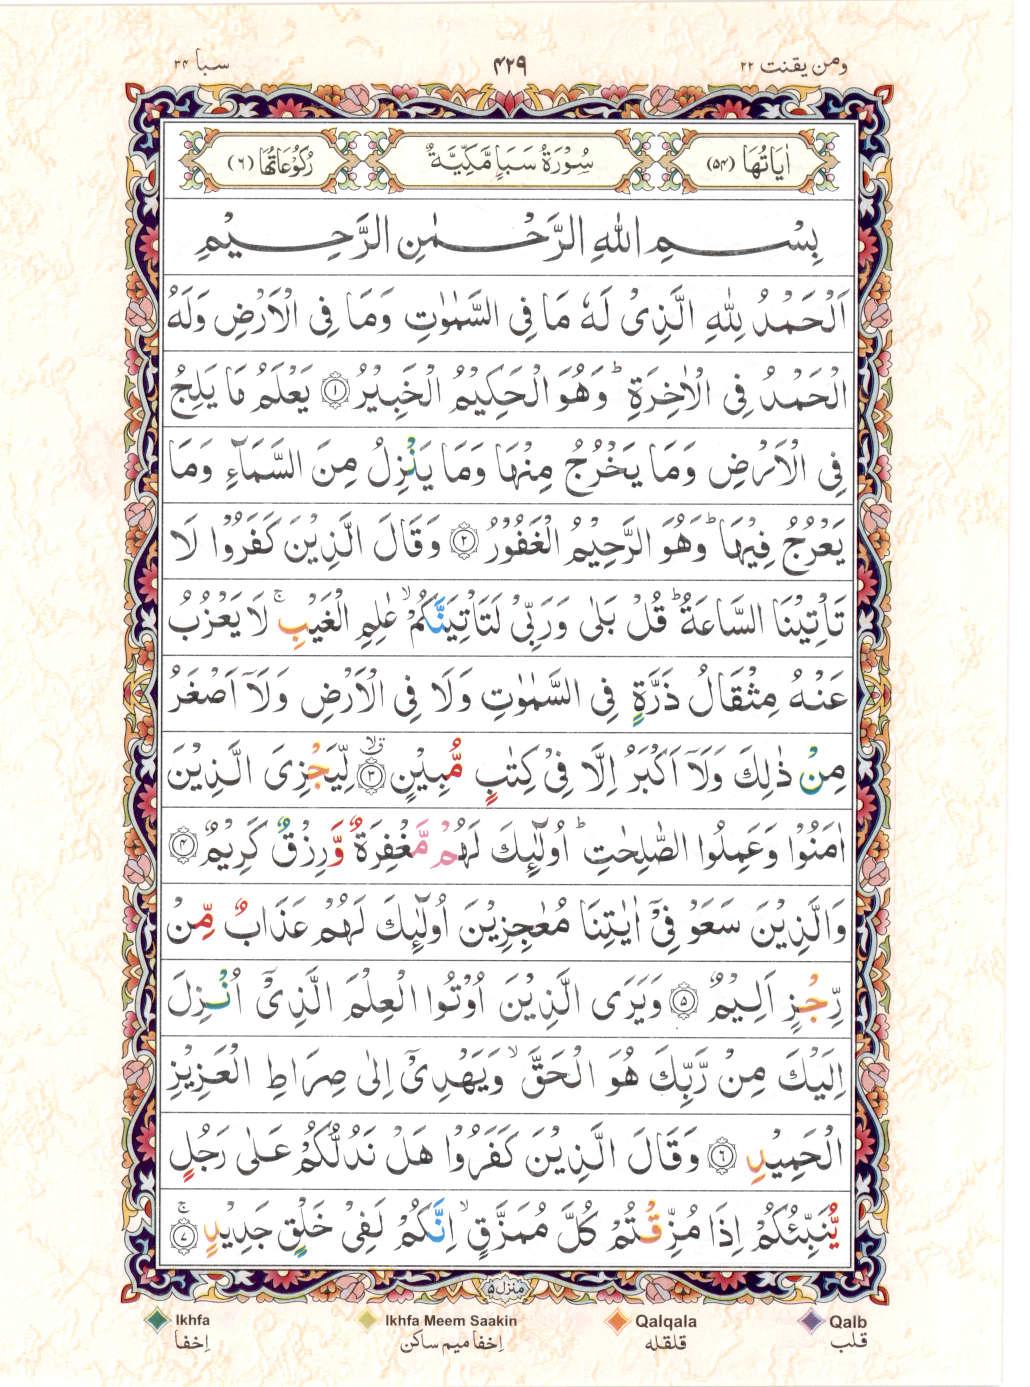 ومن يقنت ۲۲
۴۲۹
سبا ۳۴
اٰيَاتُهَا (۵۴)
سُوْرَةُ سَبَاٍ مَّكِّيَّةٌ
رُكُوْعَاتُهَا (٦)
بِسْمِ اللهِ الرَّحْمٰنِ الرَّحِيْمِ
اَلْحَمْدُ لِلّٰهِ الَّذِىْ لَهٗ مَا فِى السَّمٰوٰتِ وَمَا فِى الْاَرْضِ وَلَهُ
الْحَمْدُ فِى الْاٰخِرَةِ ؕ وَهُوَ الْحَكِيْمُ الْخَبِيْرُ ۝۱ يَعْلَمُ مَا يَلِجُ
فِى الْاَرْضِ وَمَا يَخْرُجُ مِنْهَا وَمَا يَنْزِلُ مِنَ السَّمَآءِ وَمَا
يَعْرُجُ فِيْهَا ؕ وَهُوَ الرَّحِيْمُ الْغَفُوْرُ ۝۲ وَقَالَ الَّذِيْنَ كَفَرُوْا لَا
تَاْتِيْنَا السَّاعَةُ ؕ قُلْ بَلٰى وَرَبِّىْ لَتَاْتِيَنَّكُمْ ۙ عٰلِمِ الْغَيْبِ ۚ لَا يَعْزُبُ
عَنْهُ مِثْقَالُ ذَرَّةٍ فِى السَّمٰوٰتِ وَلَا فِى الْاَرْضِ وَلَاۤ اَصْغَرُ
مِنْ ذٰلِكَ وَلَاۤ اَكْبَرُ اِلَّا فِىْ كِتٰبٍ مُّبِيْنٍ ۝۳ لِّيَجْزِىَ الَّذِيْنَ
اٰمَنُوْا وَعَمِلُوا الصّٰلِحٰتِ ؕ اُولٰٓئِكَ لَهُمْ مَّغْفِرَةٌ وَّرِزْقٌ كَرِيْمٌ ۝۴
وَالَّذِيْنَ سَعَوْ فِىْۤ اٰيٰتِنَا مُعٰجِزِيْنَ اُولٰٓئِكَ لَهُمْ عَذَابٌ مِّنْ
رِّجْزٍ اَلِيْمٌ ۝۵ وَيَرَى الَّذِيْنَ اُوْتُوا الْعِلْمَ الَّذِىْۤ اُنْزِلَ
اِلَيْكَ مِنْ رَّبِّكَ هُوَ الْحَقَّ ۙ وَيَهْدِىْۤ اِلٰى صِرَاطِ الْعَزِيْزِ
الْحَمِيْدِ ۝٦ وَقَالَ الَّذِيْنَ كَفَرُوْا هَلْ نَدُلُّكُمْ عَلٰى رَجُلٍ
يُّنَبِّئُكُمْ اِذَا مُزِّقْتُمْ كُلَّ مُمَزَّقٍ ۙ اِنَّكُمْ لَفِىْ خَلْقٍ جَدِيْدٍ ۚ ۝۷
منزل ۵
Ikhfa
اِخفا
Ikhfa Meem Saakin
اِخفا ميم ساكن
Qalqala
قلقله
Qalb
قلب